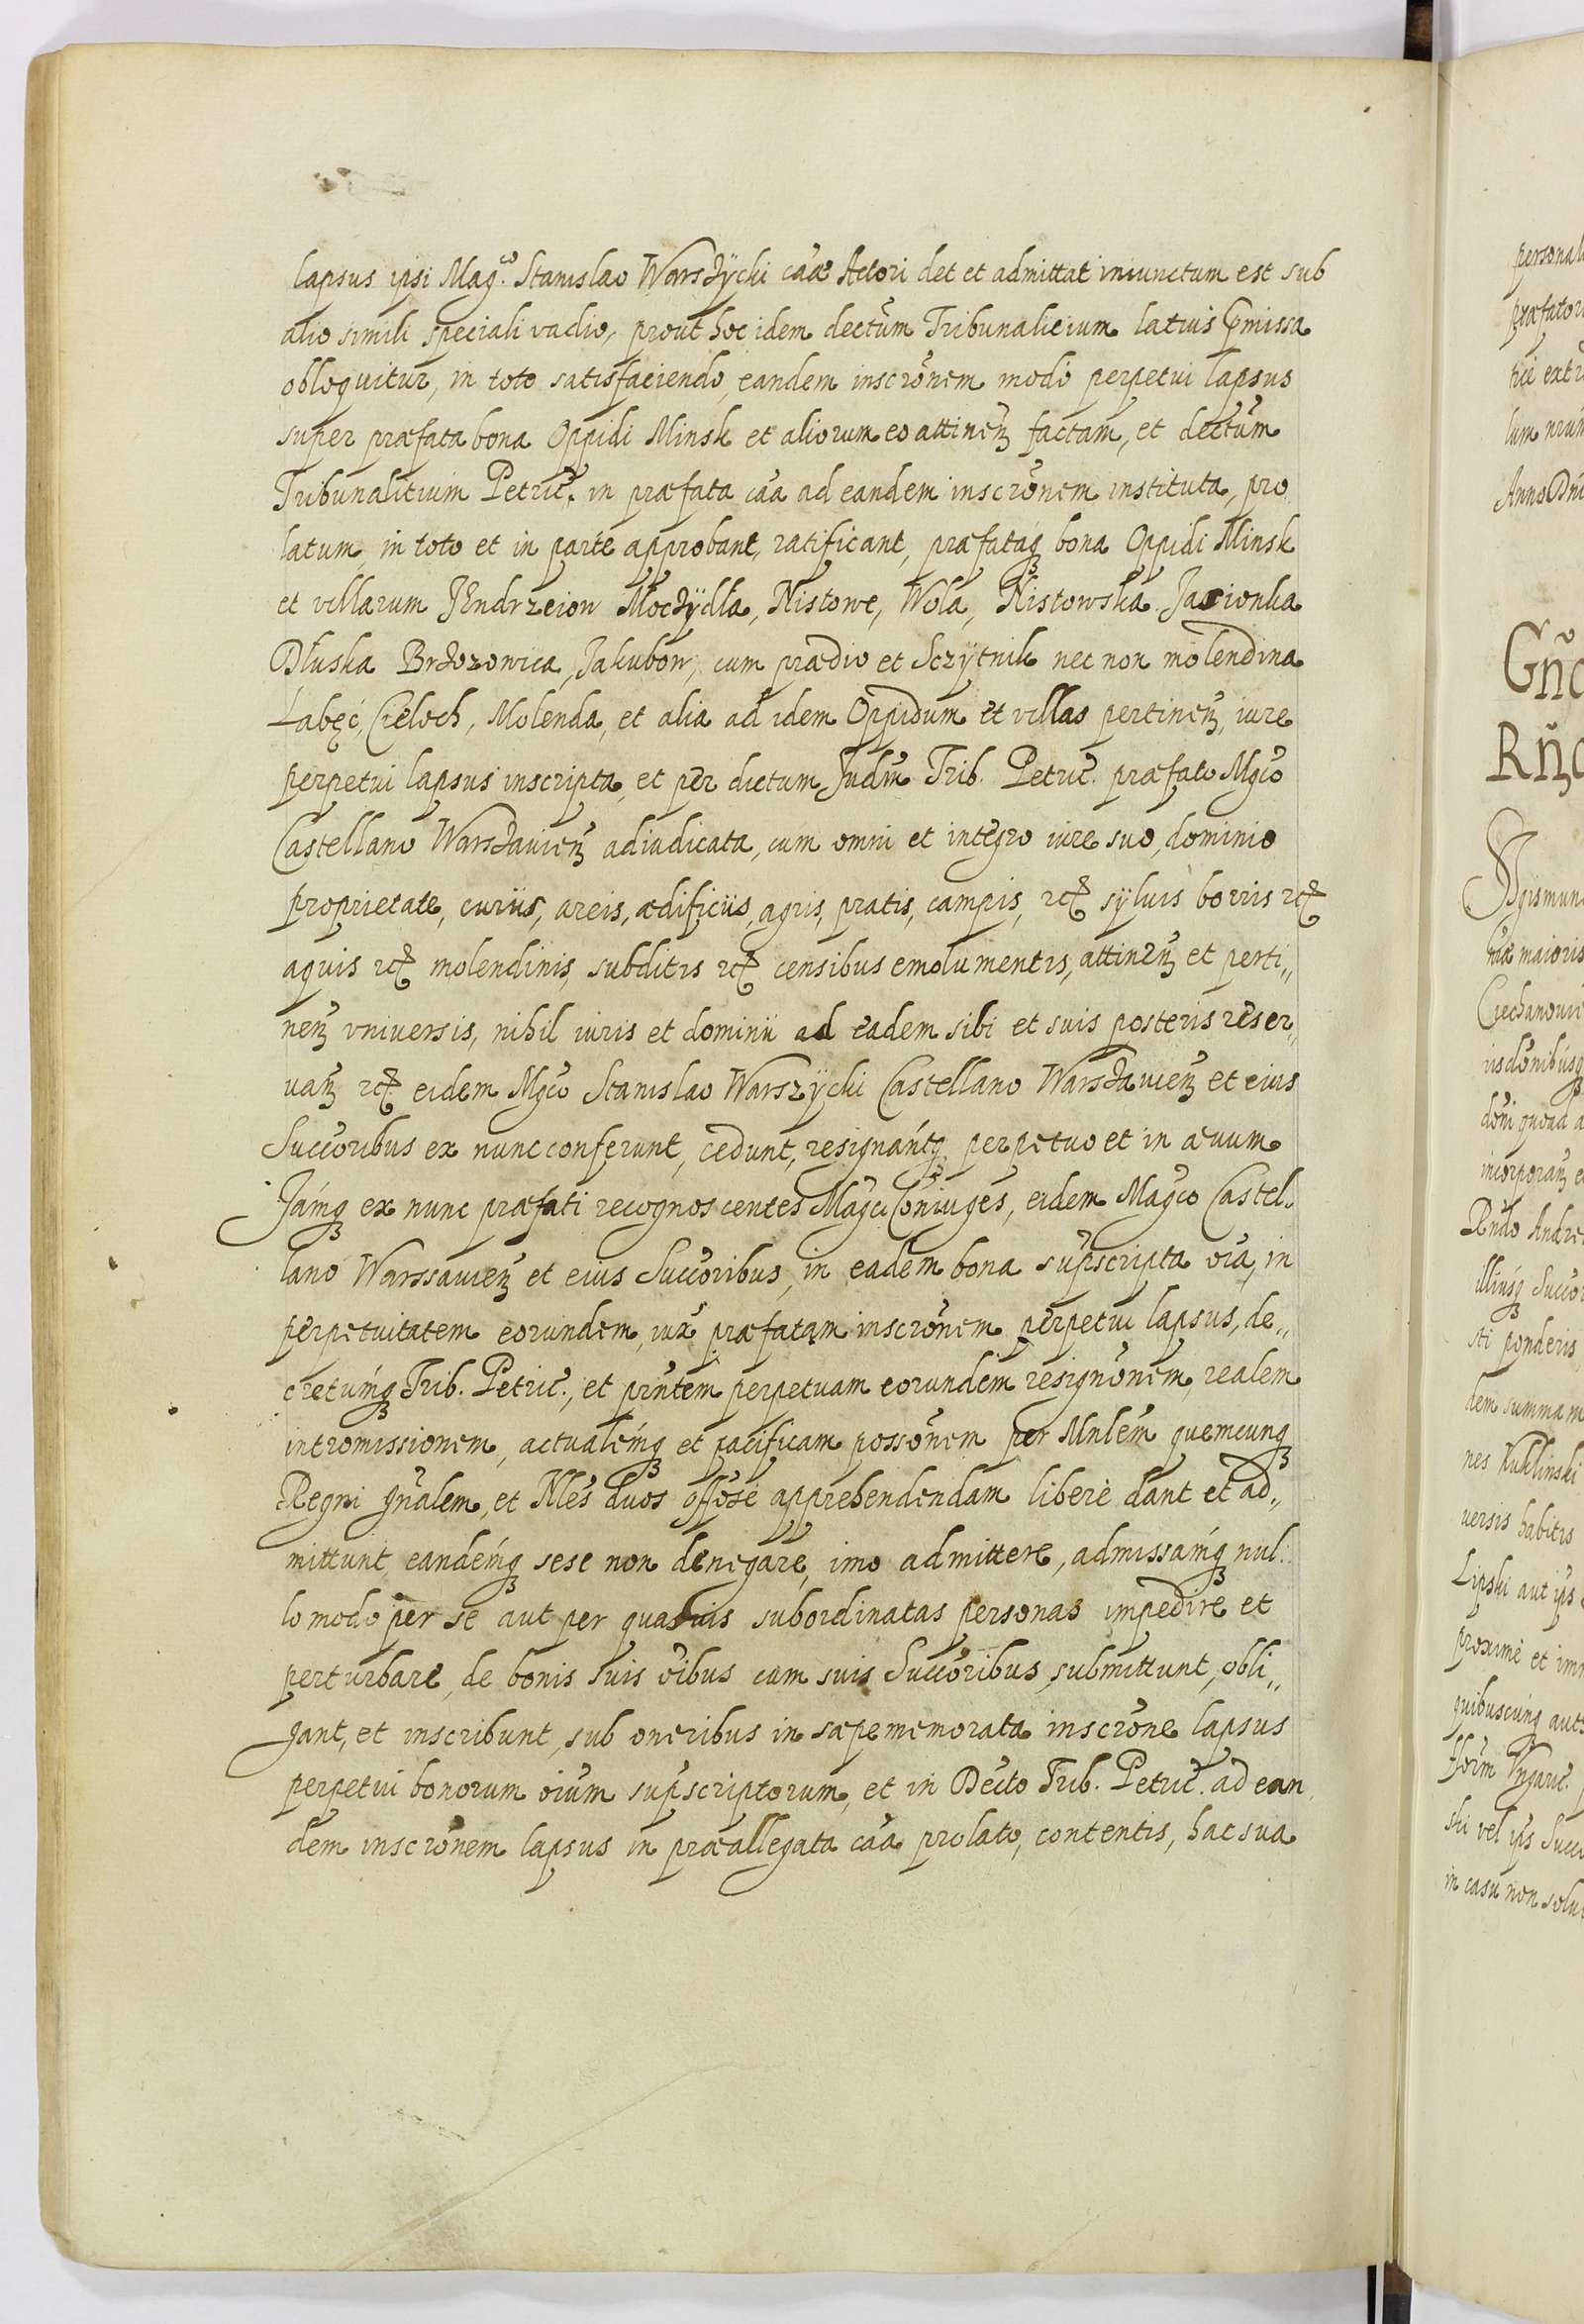 lapsus ipsi Mag.co Stanislao Warsżÿcki cãæ Actori det et admittat iniunctum est sub
alio simili speciali vadio, prout hoc idem dectũm Tribunalicium latius pmissa
obloquitur, in toto satisfaciendo, eandem inscrõnem modò perpetui lapsus
super præfata bona Oppidi Minsk et aliorum eo attineñ factam, et dectũm
Tribunalitium Petric̃. in præfata cãa ad eandem inscrõnem instituta, pro
latum, in toto et in parte approbant, ratificant, præfataq₃ bona Oppidi Minsk
et villarum JEndrzeiow Moczÿdła, Nistowe, Wola, Nistowska Jasionka
Dłuska Brżozowica, Jakubow, cum prædio et Sczÿtnik nec non molendina
Łabęć, Cieloch, Molenda, et alia ad idem Oppidum et villas pertineñ, iure
perpetui lapsus inscripta, et per dictum Judm̃ Trib. Petric̃. præfato Mgc̃o
Castellano Warsżauieñ adiudicata, cum omni et integro iure suo, dominio
proprietate, curiis, areis, ædificiis, agris, pratis, campis, etc syluis borris etc
aquis etc molendinis, subditis etc censibus emolumentis, attineñ et perti„
neñ vniversis, nihil iuris et dominii ad eadem sibi et suis posteris reser„
uañ etc eidem Mgc̃o Stanislao Warszÿcki Castellano Warsżauieñ et eius
Succõribus ex nunc conferunt, cedunt, resignántq₃ perpetuo et in æuum
Jámq₃ ex nunc præfati recognoscentes Magc̃i Coniuges, eidem Magc̃o Castel„
lano Warssauieñ et eius Succõribus, in eadem bona sup̃scripta oĩa, in
perpetuitatem eorundem, iux̃ præfatam inscrõnem perpetui lapsus, de„
cretúmq₃ Trib. Petric̃., et prñtem perpetuam eorundem resignõnem, realem
intromissionem, actualémq₃ et pacificam possõnem per Mnlẽm quemcunq₃
Regni gñalem, et Nles duos offõse apprehendendam liberè dant et ad„
mittunt, eandémq₃ sese non denegare, imo admittere, admissámq₃ nul„
lo modo per se aut per quasuis subordinatas personas impedire et
perturbare, de bonis suis oĩbus cum suis Succõribus submittunt, obli„
gant, et inscribunt, sub oneribus in sæpememorata inscrõne lapsus
perpetui bonorum oĩum sup̃scriptorum, et in Decto Trib. Petric̃. ad ean
dem inscrõnem lapsus in præallegata cãa prolato, contentis, hac sua
personal
præfator
lum nrũm
Anno Dñi
Gñ
Rñ
maioris
Ciechanoui
incorporañ
Rndo Andre
illiusq₃ Succo
sti ponderis
dem summam
nes Kuklinski
uersis habitis
Lipski aut ips
proximè et im
quibuscunq₃ aut
florm̃ Vngaric̃.
ski vel ips Succ
in casu non solu